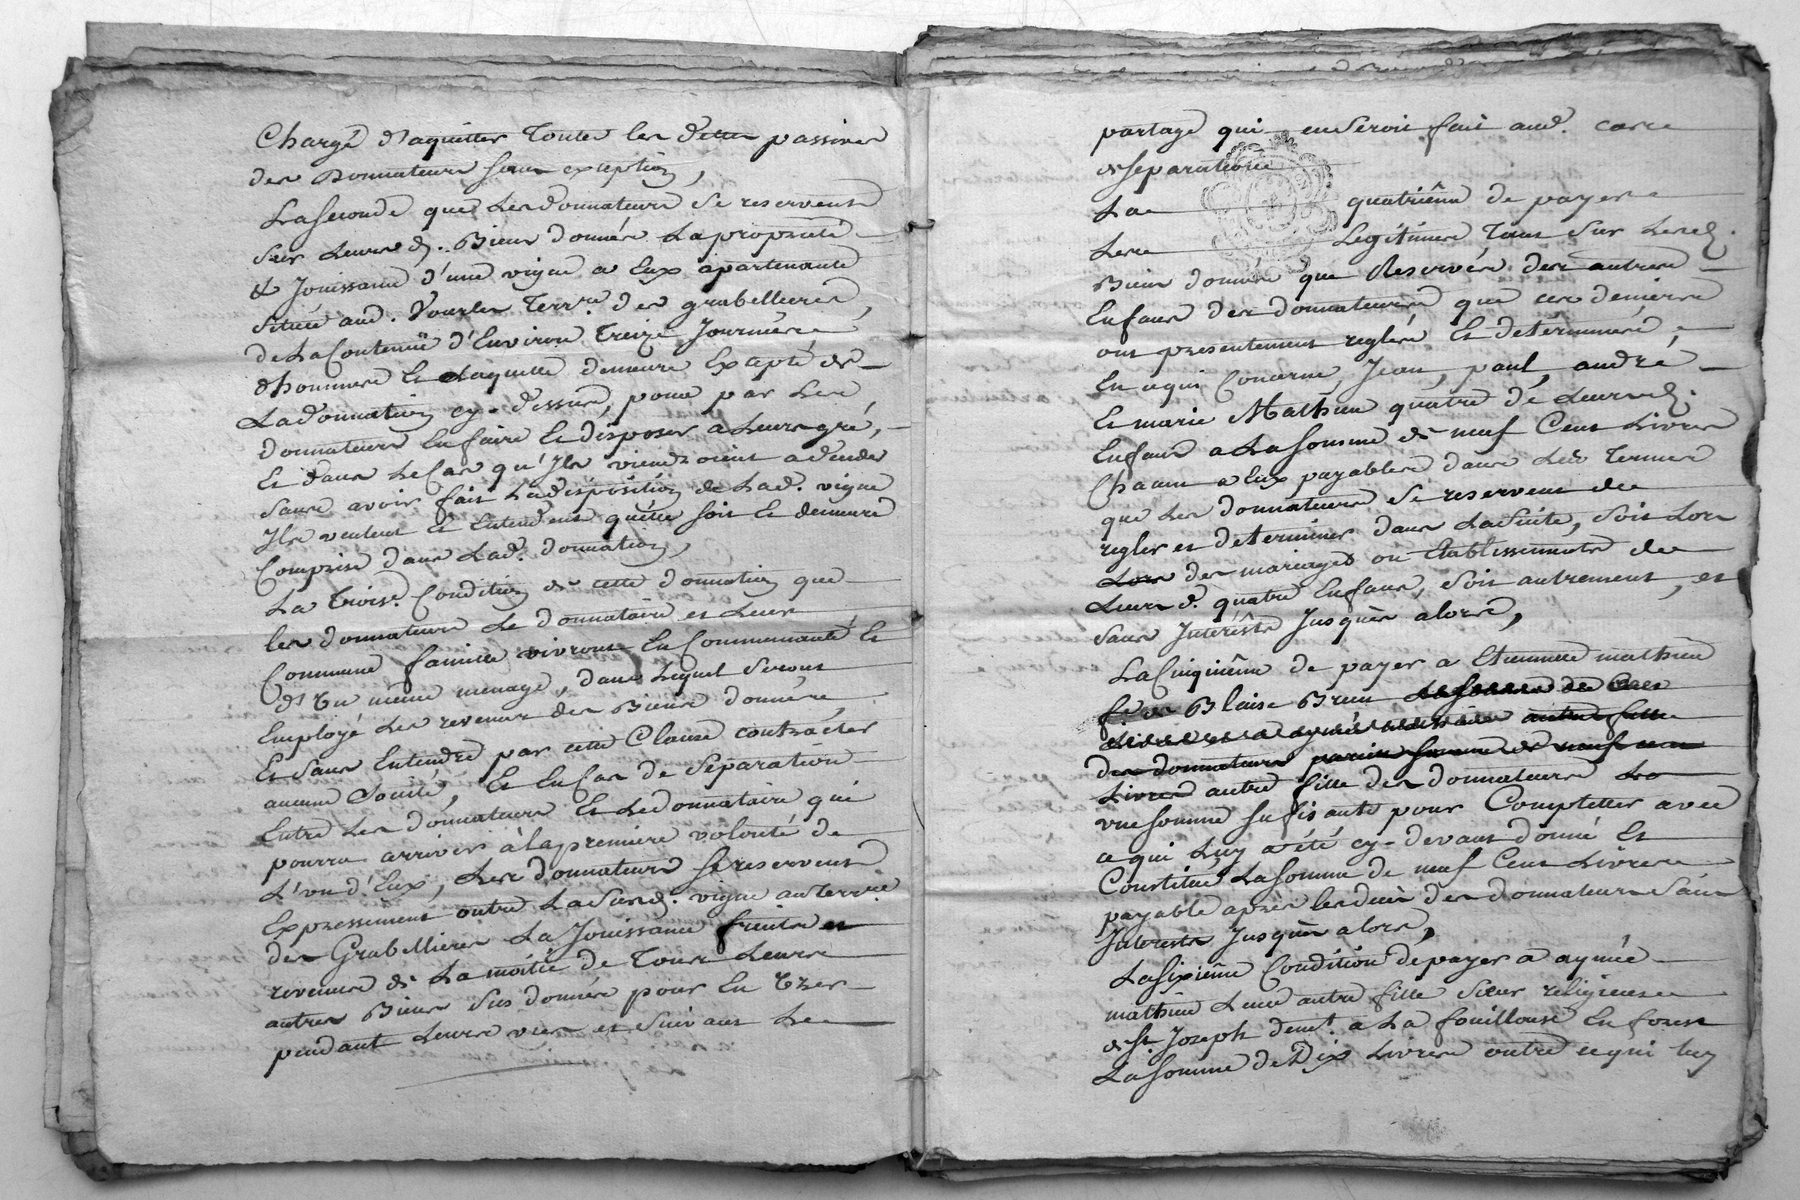 Chargé d'aquitter Toutes les dettes passives
des Donnateurs sans exception,
La seconde que Les donnateurs se reservent
sur Leursd. Biens donnés La proprieté
& Jouissance d'une vigne a Eux apartenante
située aud. Vourles Terr.re des grabellieres,
de La Contenüe d'Environ Treize Journées
d'hommes Et Laquelle demeure Exceptée de
La donnation cy-dessus, pour par Les
donnateurs En faire Et disposer a Leurs gré,
Et dans Le Cas qu'Ils viendroient a deceder
sans avoir fait La disposition de Lad. vigne
Ils veulent Et Entendent qu'elle soit Et demeure
Comprise dans Lad. donnation,
La Trois.e Condition de cette donnation que
les donnateurs Le donnataire et Leurs
Commune famille vivront En Communauté Et
d'un même menage, dans Lequel seront
Employé Les revenus des Biens donnés,
Et sans Entendre par cette Clause contracter
aucune Societé, Et En Cas de Séparation
Entre Les donnateurs Et Le donnataire qui
pourra arriver à la premiere volonté de
L'un d'Eux, Les donnateurs se reservent
Expressement outre La susd. vigne au Terr.re
des Grabellieres La Jouissance fruits et
revenus de La moitié de Tous Leurs
autres Biens sus donnés pour En User
pendant Leurs vies et suivant Le
partage qui en seroit fait aud. cas
de separation
La quatriême de payer
Les Legitimes Tant sur Lesd.
Biens donnés que Reservés des autres
Enfans des donnateurs que ces derniers
ont presentement reglés Et determinés
En ce qui Concerne Jean, paul, andré
Et marie Mathieu quatre de Leursd.
Enfans a La somme de neuf Cent Livres
Chacun a Eux payables dans Les Termes
que Les donnateurs se reservent de
regler et determiner dans La suite, soit Lors
Lors des mariages ou Etablissements de
Leurs d. quatre Enfans, soit autrement, et
sans Interêsts Jusques alors,
La Cinquiême de payer a Etiennette mathieu
f.e de Blaise Brun La somme de Cent
Livres et a aymée mathieu autre fille
des donnateurs pareille somme de neuf cent
Livres autre fille des donnateurs La
une somme sufisante pour Completter avec
ce qui Luy a été cy-devant donné Et
Constitué La somme de neuf Cent Livres
payable après les decès des donnateurs sans
Interests Jusques alors,
La sixieme Condition de payer a aymée
mathieu Leurs autre fille sœur religieuse
de St. Joseph demt. a La fouillouse En forest
La somme de Dix Livres outre ce qui Luy